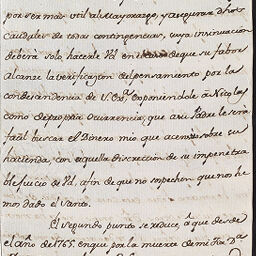 por ser mas util al Mayorazgo, y asegurar dhos
caudales de todas contingencias, cuya insinuacion
deberá solo hacerle Vd en el caso de que su favor
alcanze la verificazon del pensamiento por la
condesendencia de V. Exa. oponiendole a Nicolas
como de propia ocurrencia, que a su Padre le será
facil buscar el Dinero mio que acenso sobre su
hacienda, con aquella discrecion de su impenetra
ble juicio de Vd, afin de que no sospechen que nos he
mos dado el Santo.
El segundo punto se reduce, á que desde
el año de 1765. en que por la muerte de mi Da